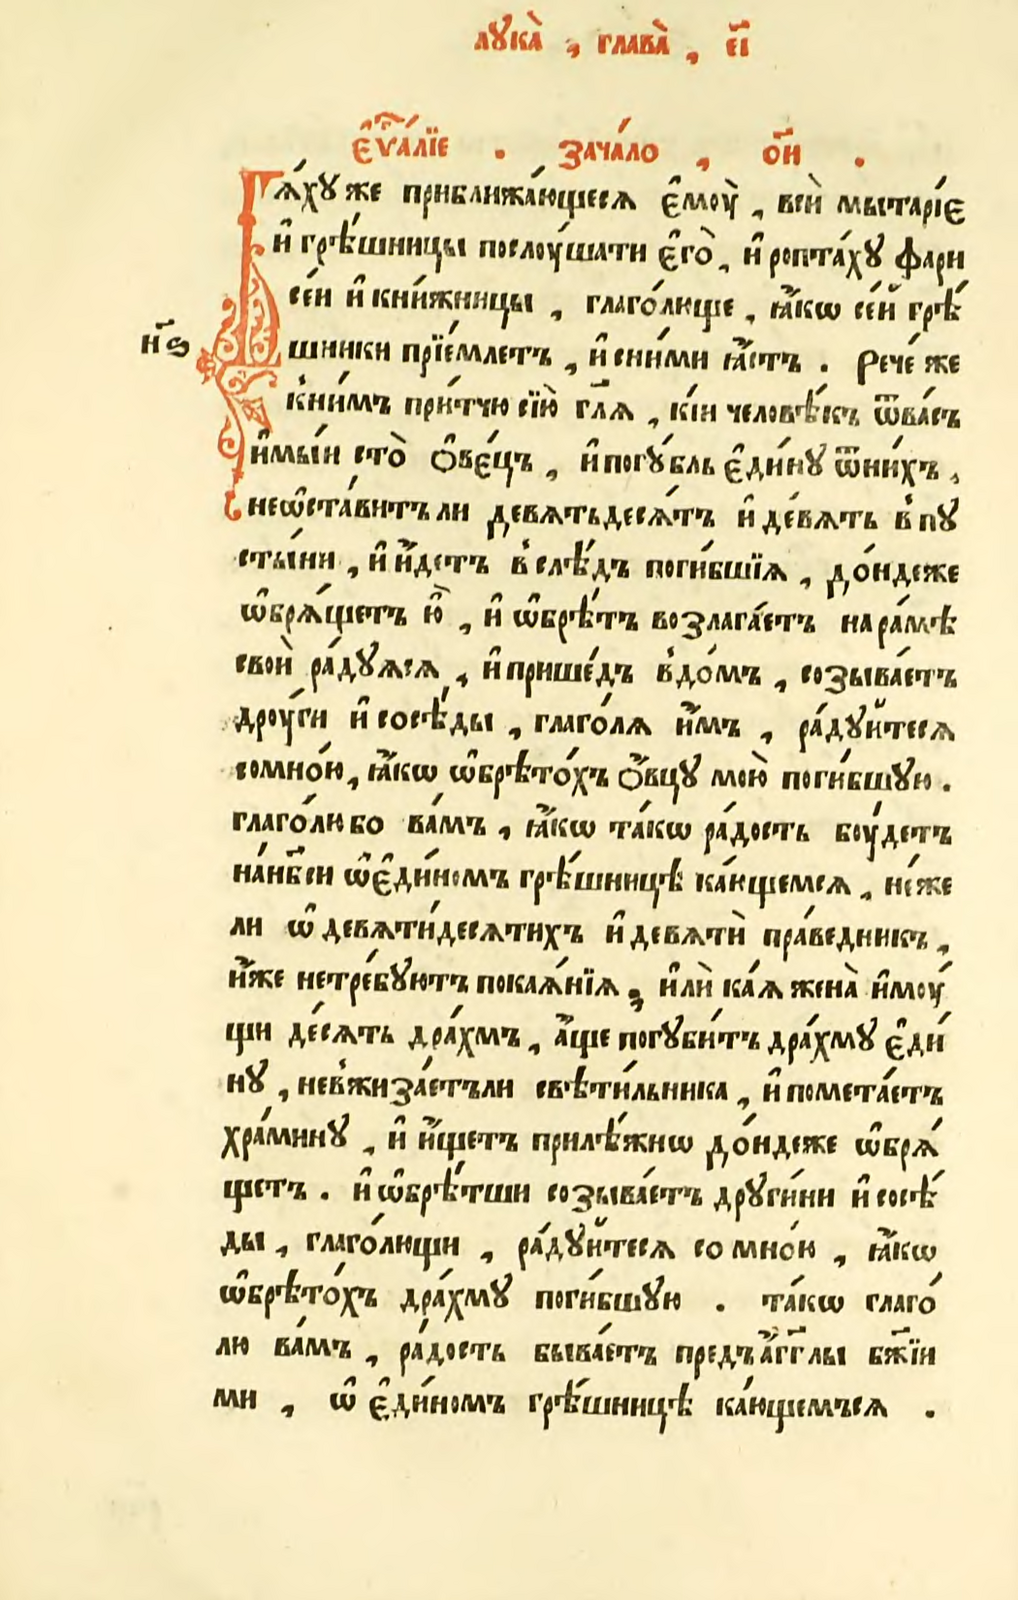 лꙋка̀ , глава̀ , е҃і
є҆ѵⷢ҇а́лїе . зача́ло , о҃и .
Бѧ́хꙋ же приближа́ющесѧ є҆моу̀ , всѝ мытарі́є
и҆ грѣ́шницы послоу́шати є҆го̀ , и҆ ропта́хꙋ фари
се́и и҆ кни́жницы , глаго́лще , ꙗ҆́кѡ се́й грѣ́
н҃ѕ
шники прїе́млетъ , и҆ сни́ми ꙗ҆́стъ . Рече́ же
к̾ни́мъ при́тчю сїю̀ гл҃ѧ , кі́и человѣ́къ ѿва́съ
и҆мы́и сто̀ ѻ҆ве́цъ , и҆ погꙋ́бль є҆ди́нꙋ ѿни́хъ ,
неѡ҆ста́витъ ли девѧтьдесѧ́тъ и҆ де́вѧть в̾ пꙋ
сты́ни , и҆ и҆́детъ в̾слѣ́дъ поги́бшїѧ , до́ндеже
ѡ҆брѧ́щетъ ю҆̀ , и҆ ѡ҆брѣ́тъ возлага́етъ на ра́мѣ
своѝ ра́дꙋѧсѧ , и҆ прише́дъ в̾до́мъ , созыва́етъ
дроу́ги и҆ сосѣ́ды , глаго́лѧ и҆̀мъ , ра́дꙋйтесѧ
сомно́ю , ꙗ҆́кѡ ѡ҆брѣто́хъ ѻ҆́вцꙋ мою̀ поги́бшꙋю .
глаго́лю бо ва́мъ , ꙗ҆́кѡ та́кѡ ра́дость боу́детъ
на́нб҃си ѡ҆є҆ди́номъ грѣ́шницѣ ка́ющемсѧ , не́же
ли ѡ҆ девѧти́десѧтихъ и҆ девѧтѝ пра́ведникъ ,
и҆́же нетре́бꙋютъ покаѧ́нїѧ , и҆лѝ ка́ѧ жена̀ и҆моу́
щи де́сѧть дра́хмъ , а҆́ще погꙋби́тъ дра́хмꙋ є҆ди́
нꙋ , нев̾жиза́етъли свѣти́льника , и҆ помета́етъ
хра́минꙋ , и҆ и҆́щетъ прилѣ́жнѡ до́ндеже ѡ҆брѧ́
щетъ . и҆ ѡ҆брѣ́тши созыва́етъ дрꙋги́ни и҆ сосѣ́
ды , глаго́лющи , ра́дꙋйтесѧ со мно́ю , ꙗ҆́кѡ
ѡ҆брѣто́хъ дра́хмꙋ поги́бшꙋю . та́кѡ глаго́
лю ва́мъ , ра́дость быва́етъ предъ а҆́гг҃лы бж҃їи
ми , ѡ҆ є҆ди́номъ грѣ́шницѣ ка́ющемъсѧ .